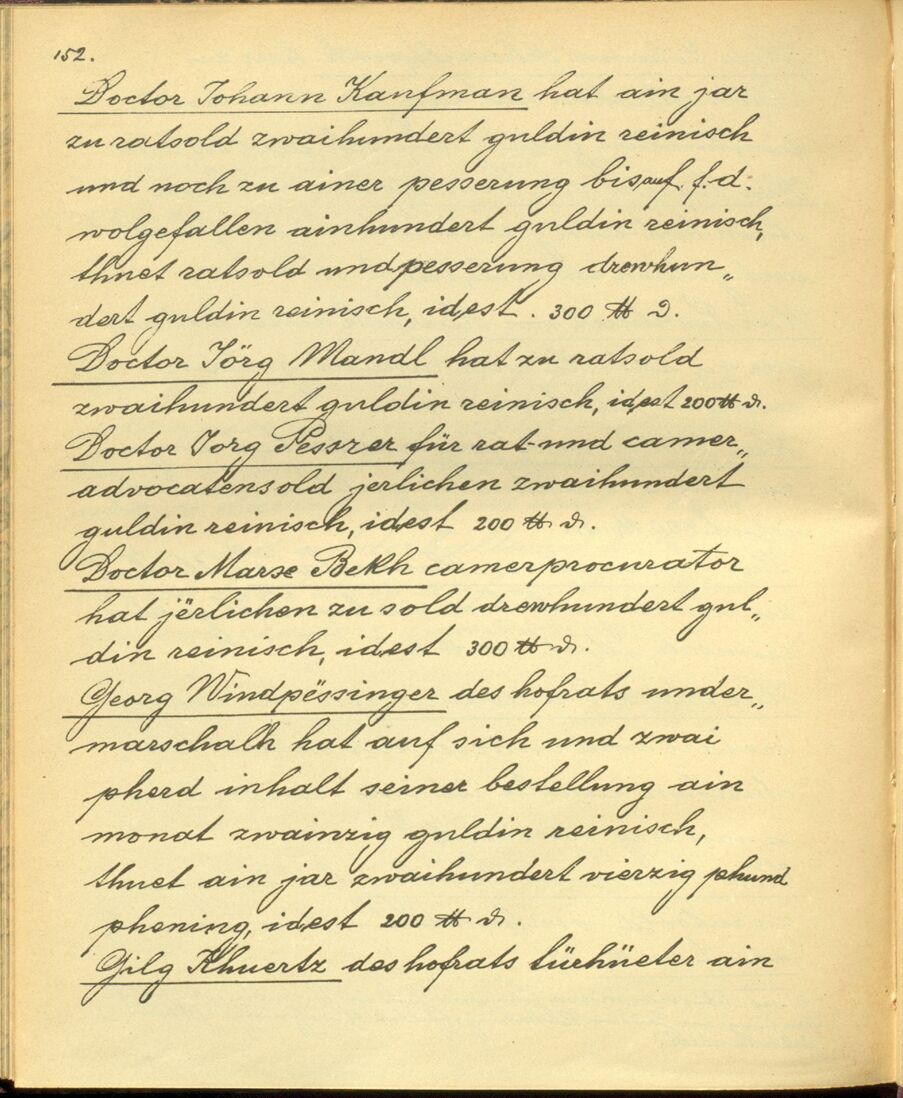 152.
Doctor Johann Kaufman hat ain jar
zu ratsold zwaihundert guldin reinisch
und noch zu ainer pesserung bis auf f. d.
wolgefallen ainhundert guldin reinisch,
thuet ratsold und pesserung drewhun„
dert guldin reinisch, id est . 300 ℔ ₰.
Doctor Jörg Mandl hat zu ratsold
zwaihundert guldin reinisch, id est 200 ℔ ₰.
Doctor Jorg Pesszrer für rat- und camer„
advocatensold jerlichen zwaihundert
guldin reinisch, id est 200 ℔ ₰.
Doctor Marse Bekh camerprocurator
hat jërlichen zu sold drewhundert gul„
din reinisch, id est 300 ℔ ₰.
Georg Windpëssinger des hofrats under„
marschalh hat auf sich und zwai
pherd inhalt seiner bestellung ain
monat zwainzig guldin reinisch,
thuet ain jar zwaihundert vierzig phund
phening, id est 200 ℔ ₰.
Gilg Khuertz des hofrats türhüeter ain